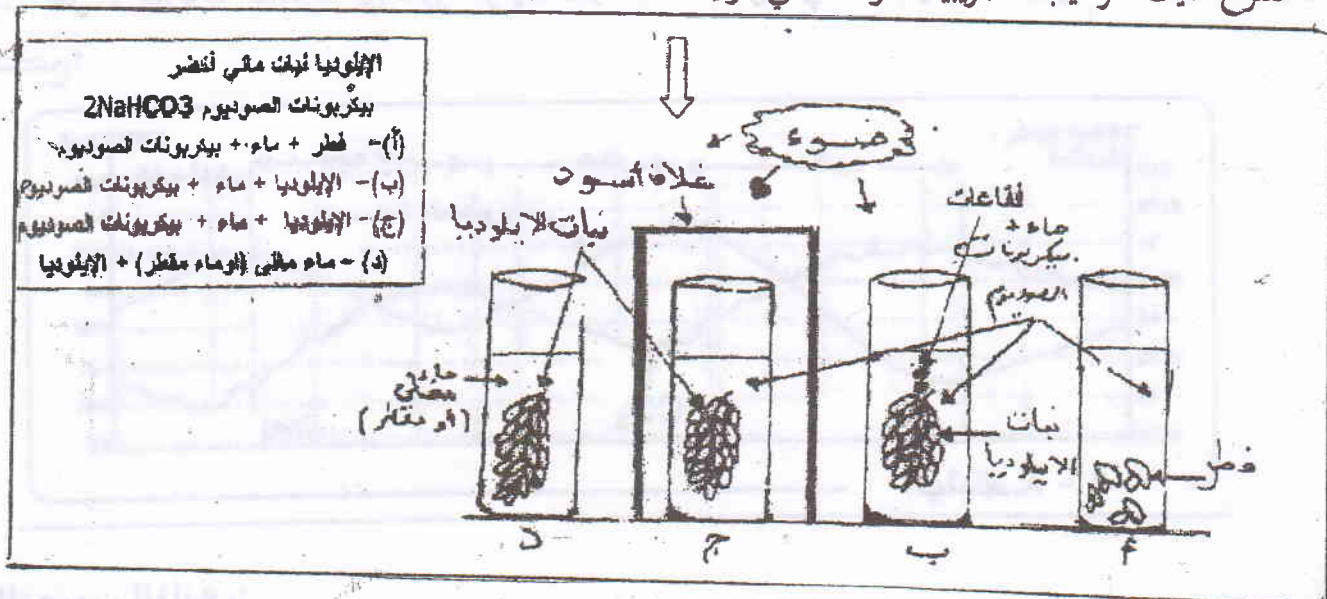 الإيلوديا نبات مائي أخضر
بيكربونات الصوديوم 2NaHCO3
(أ)- فطر + ماء + بيكربونات الصوديوم
(ب)- الإيلوديا + ماء + بيكربونات الصوديوم
(ج)- الإيلوديا + ماء + بيكربونات الصوديوم
(د) - ماء مغلي (أو ماء مقطر) + الإيلوديا
ضوء
غلاف أسود
نبات الايلوديا
فقاعات
ماء +
بيكربونات
الصوديوم
ماء
مغلي
(أو مقطر)
نبات
الايلوديا
فطر
د
ج
ب
أ